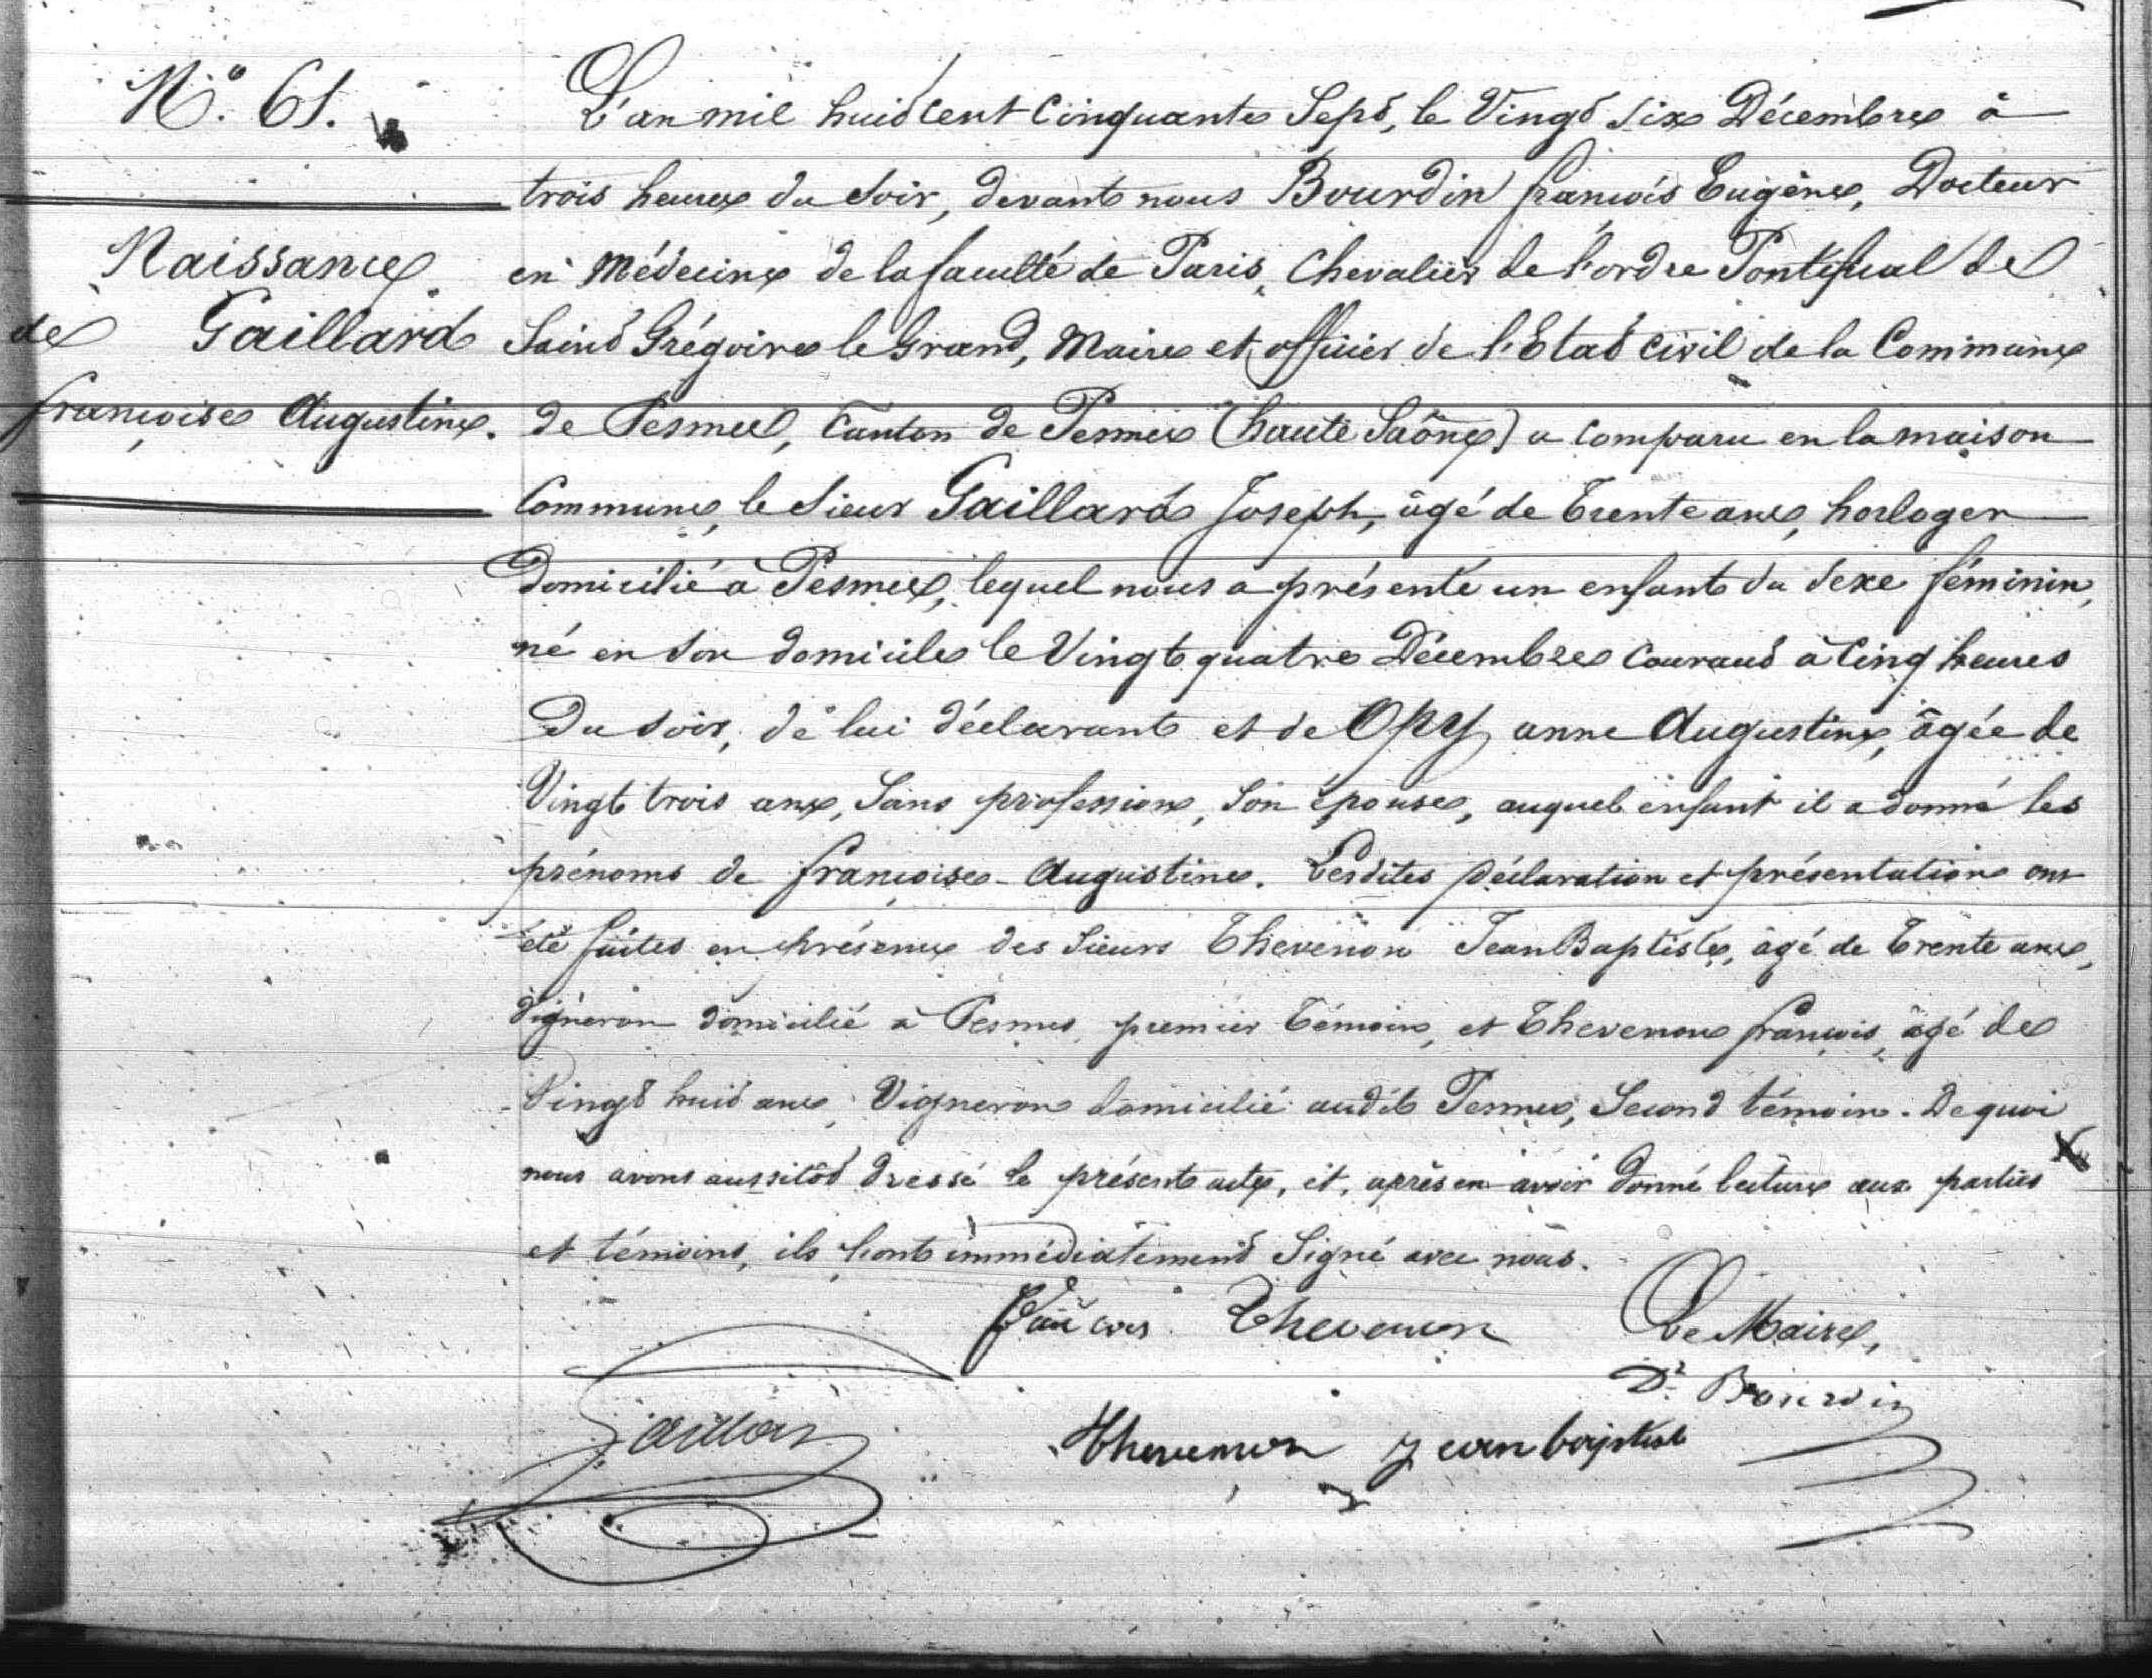 N.° 61.
Naissance
de Gaillard
françoise Augustine.
L'an mil huit cent cinquante Sept, le Vingt Six Décembre à
trois heures du Soir, devant nous Bourdin françois Eugène, Docteur
en Médecine de la faculté de Paris, Chevalier de l'ordre Pontifical de
Saint Grégoire le Grand, Maire et officier de l'Etat civil de la Commune
de Pesmes, Canton de Pesmes (haute Saône) a comparu en la maison
Commune, le Sieur Gaillard Joseph, âgé de trente ans, horloger
Domicilié à Pesmes, lequel nous a présenté un enfant du Sexe féminin,
né en Son domicile le Vingt quatre Décembre Courant à Cinq heures
Du Soir, de lui déclarant et de Opy anne Augustine, âgée de
Vingt trois ans, Sans profession, Son épouse, auquel enfant il a donné les
prénoms de françoise-Augustine. Lesdites déclaration et présentation ont
été faites en présence des Sieurs Thevenon Jean Baptiste, âgé de trente ans,
Vigneron domicilié à Pesmes, premier témoin, et Thevenon françois, âgé de
Vingt huit ans, Vigneron domicilié audit Pesmes, Second témoin. De quoi
nous avons aussitôt dressé le présent acte, et, après en avoir donné lecture aux parties
et témoins, ils l'ont immédiatement Signé avec nous.
François Thevenon Le Maire,
Dr Bourdin
Gaillard Thevenon Jean baptiste